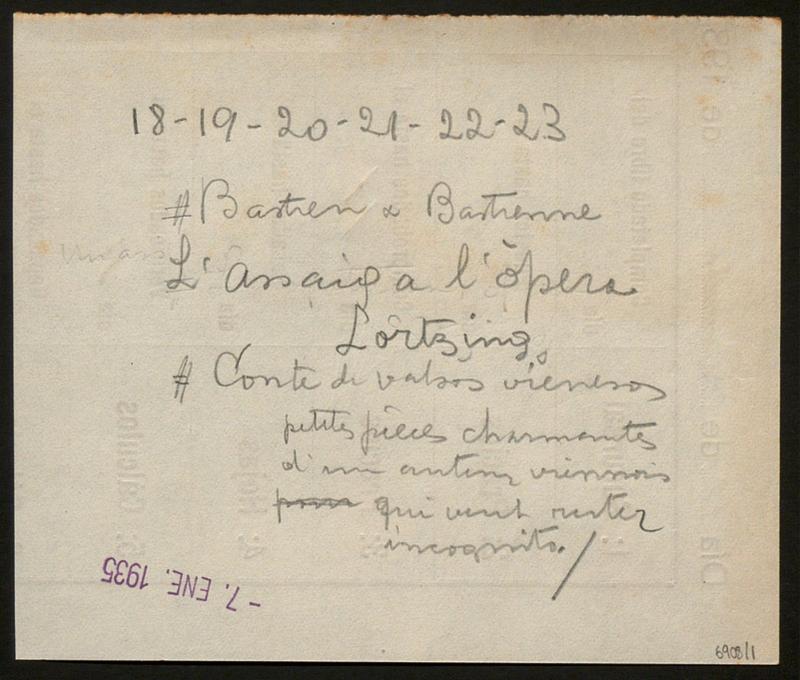 18-19-20-21-22-23
# Bastien & Bastienne
L'assaig a l'òpera
Lörtzing.
# Conte de valsos vienesos
petites pièces charmantes
d'un auteur viennois
pour qui veut rester
incognito. /
-7. ENE. 1935
6908/1